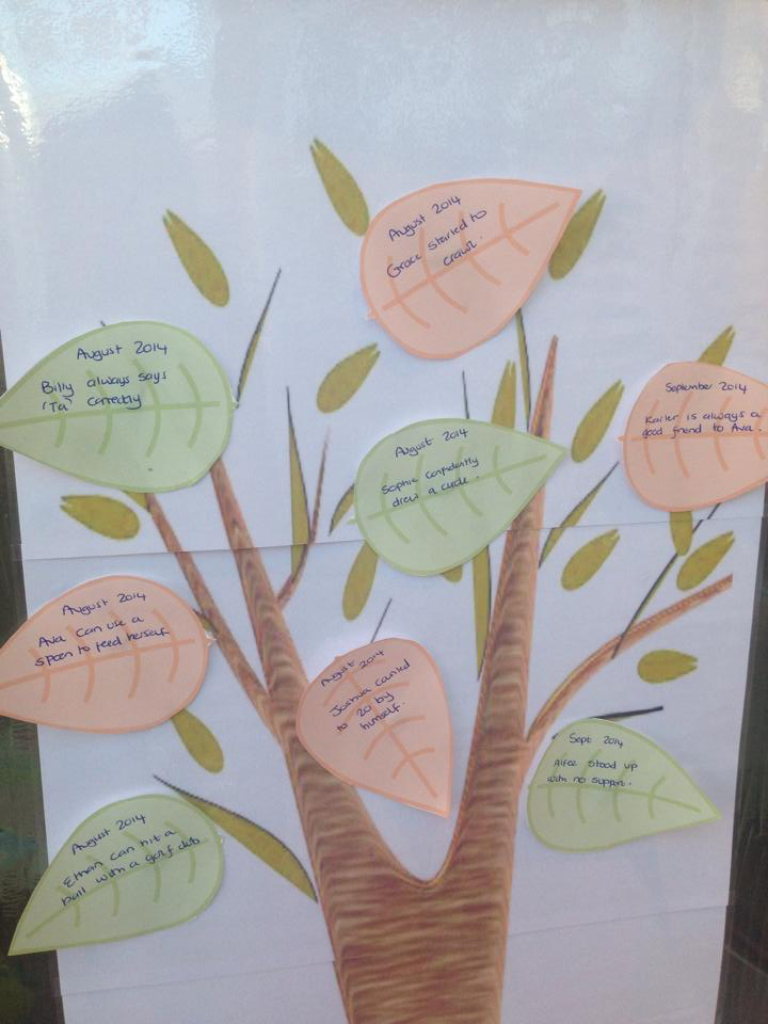 August 2014
Grace started to
crawl.
August 2014
Billy always says
'Ta' correctly
September 2014
Kaiser is always a
good friend to Ava.
August 2014
Sophie confidently
drew a circle.
August 2014
Ava can use a
spoon to feed herself
August 2014
Joshua counted
to 20 by
himself.
Sept 2014
stood up
with no support.
August 2014
Ethan can hit a
ball with a golf club